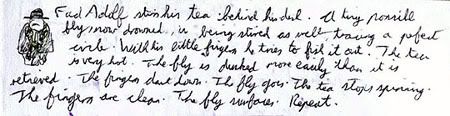 Fad Adolf stirs his tea behind his desk. A tiny
fly now drowned, is being stirred as well tracing a perfect
circle. With his little fingers he tries to fish it out. The tea
is very hot. The fly is dunked more easily than it is
retrieved. The fingers dart down. The fly goes. The tea stops spinning.
The fingers are clean. The fly surfaces. Repeat.